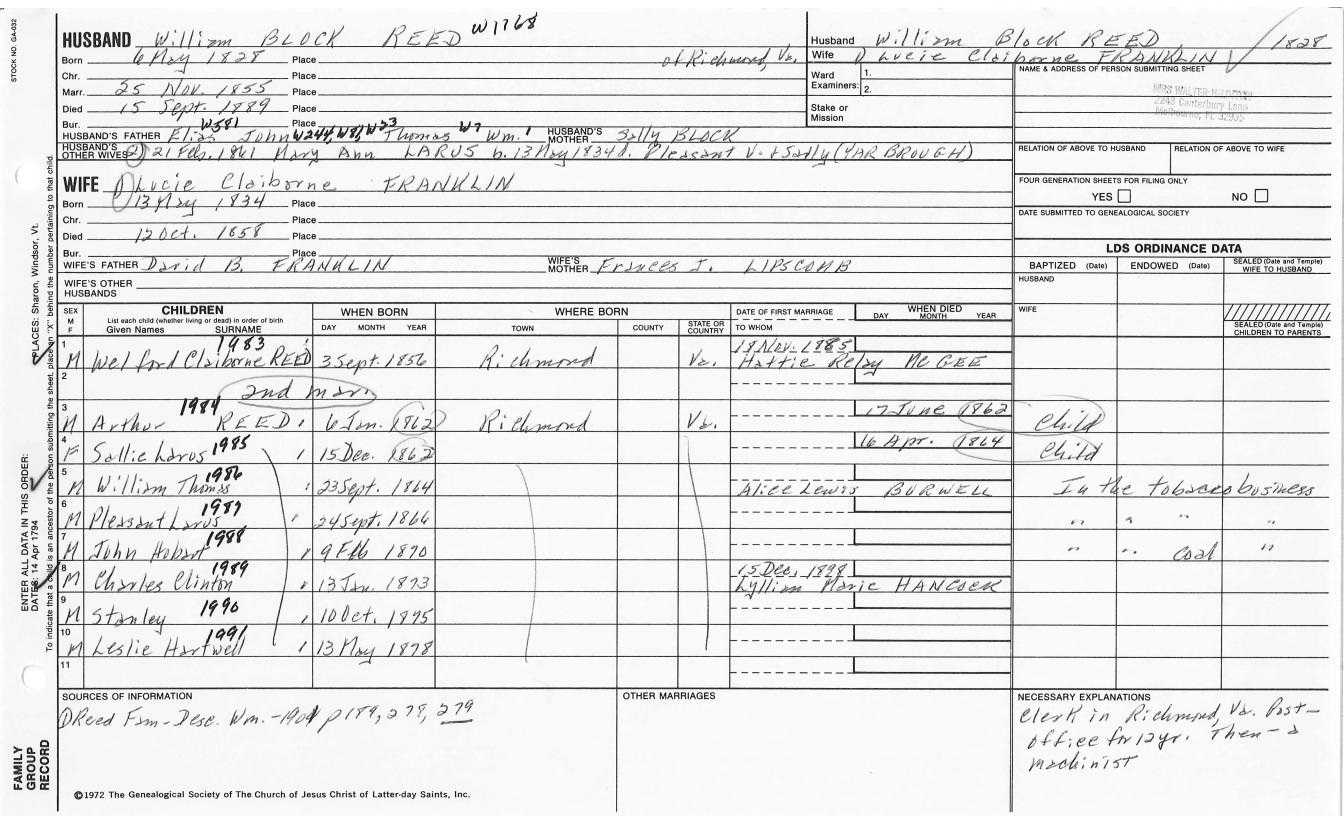 STOCK NO. GA-032
HUSBAND William BLOCK REED W1768
Born 6 May 1828 Place of Richmond, Va.
Chr. Place
Marr. 25 Nov. 1855 Place
Died 15 Sept. 1889 Place
Bur. Place
W581 W244, W81, W23 W7 1
HUSBAND'S FATHER Elias John Thomas Wm. HUSBAND'S MOTHER Sally BLOCK
HUSBAND'S OTHER WIVES 2) 21 Feb. 1861 Mary Ann LARUS b. 13 May 1834 d. Pleasant V. & Sally (YARBROUGH)
WIFE 1) Lucie Claiborne FRANKLIN
Born 13 May 1834 Place
Chr. Place
Died 12 Oct. 1858 Place
Bur. Place
WIFE'S FATHER David B. FRANKLIN WIFE'S MOTHER Frances I. LIPSCOMB
WIFE'S OTHER HUSBANDS
Husband William Block REED 1828
Wife 1) Lucie Claiborne FRANKLIN
Ward Examiners: 1. 2.
Stake or Mission
NAME & ADDRESS OF PERSON SUBMITTING SHEET
MRS WALTER
2243 Canterbury Lane
Melbourne, FL 32935
RELATION OF ABOVE TO HUSBAND RELATION OF ABOVE TO WIFE
FOUR GENERATION SHEETS FOR FILING ONLY
YES NO
DATE SUBMITTED TO GENEALOGICAL SOCIETY
LDS ORDINANCE DATA
BAPTIZED (Date) ENDOWED (Date) SEALED (Date and Temple) WIFE TO HUSBAND
HUSBAND
WIFE
SEALED (Date and Temple) CHILDREN TO PARENTS
SEX M F CHILDREN WHEN BORN WHERE BORN DATE OF FIRST MARRIAGE WHEN DIED
List each child (whether living or dead) in order of birth
Given Names SURNAME DAY MONTH YEAR TOWN COUNTY STATE OR COUNTRY TO WHOM DAY MONTH YEAR
1 1983 18 Nov. 1885
M Welford Claiborne REED 3 Sept. 1856 Richmond Va. Hattie Relay McGEE
2 2nd marr
3 1984 17 June 1862
M Arthur REED 6 Jan. 1862 Richmond Va. Child
4 1985 16 Apr. 1864
F Sallie Larus " 15 Dec. 1862 Child
5 1986
M William Thomas " 23 Sept. 1864 Alice Lewis BURWELL In the tobacco business
6 1987
M Pleasant Larus " 24 Sept. 1866 " " " "
7 1988
M John Hobart " 9 Feb 1870 " " Coal "
8 1989 15 Dec. 1898
M Charles Clinton " 13 Jan. 1873 Lyllian Marie HANCOCK
9 1990
M Stanley " 10 Oct. 1875
10 1991
M Leslie Hartwell " 13 May 1878
11
SOURCES OF INFORMATION
1) Reed Fam-Desc. Wm. -1904 p189, 278, 279
OTHER MARRIAGES
NECESSARY EXPLANATIONS
Clerk in Richmond, Va. Post-
office for 12 yr. Then - a
machinist
©1972 The Genealogical Society of The Church of Jesus Christ of Latter-day Saints, Inc.
FAMILY GROUP RECORD
ENTER ALL DATA IN THIS ORDER:
DATES: 14 Apr 1794
PLACES: Sharon, Windsor, Vt.
To indicate that a child is an ancestor of the person submitting the sheet, place an "X" behind the number pertaining to that child.